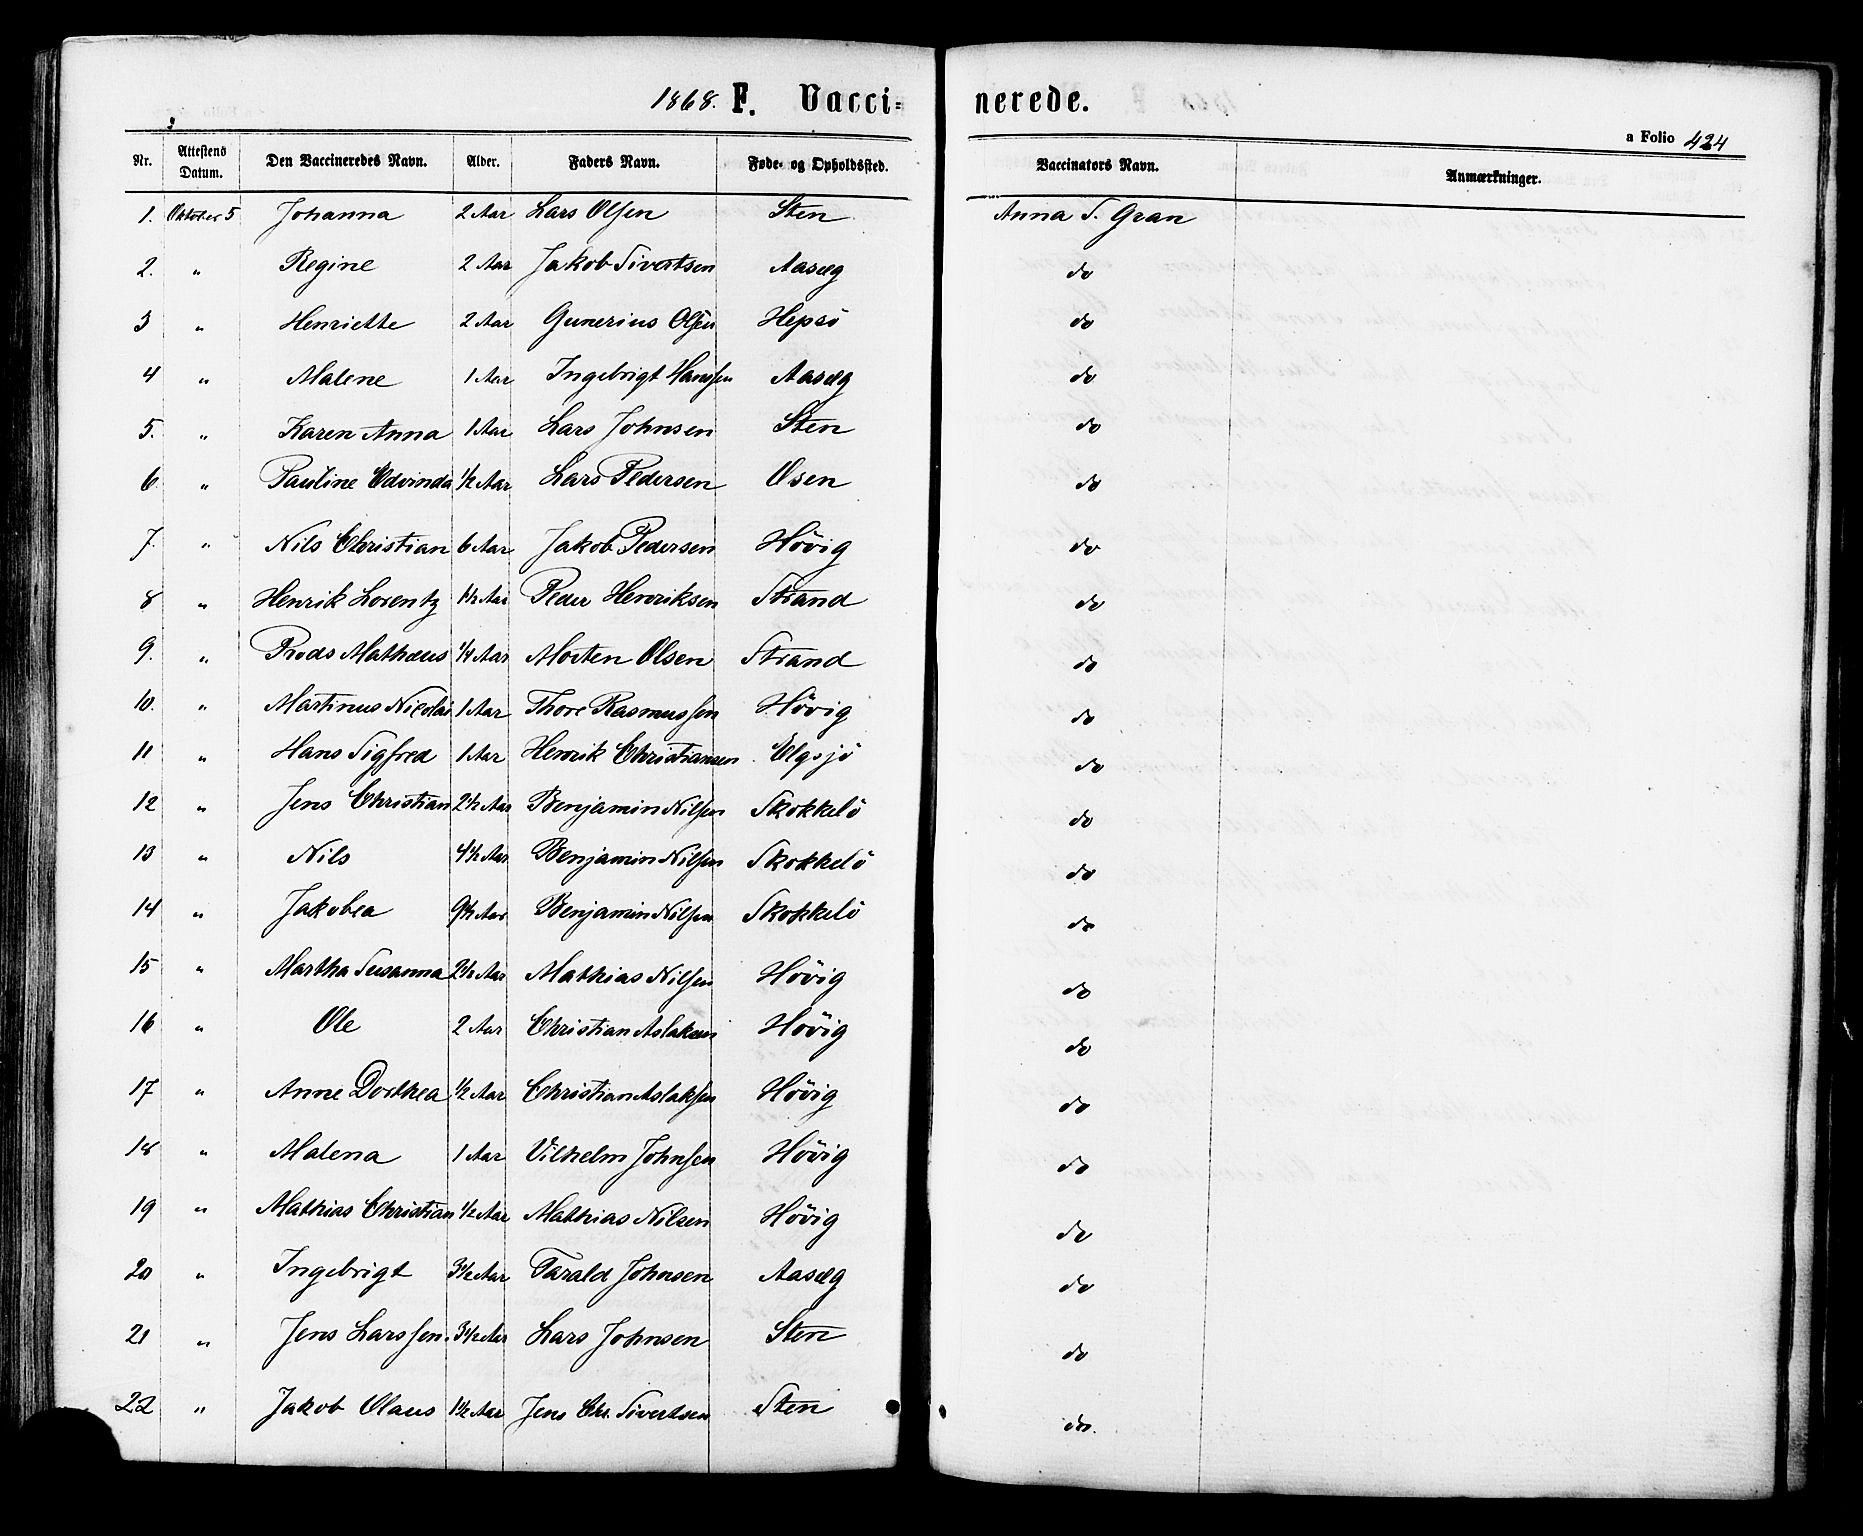 1868. F. Vacci-nerede.
a Folio 424
Nr. Attestens Datum. Den Vaccineredes Navn. Alder. Faders Navn. Føde- og Opholdssted. Vaccinators Navn. Anmærkninger.
1. Oktober 5 Johanna 2 Aar Lars Olsen Sten Anna S. Gran
2. " Regine 2 Aar Jakob Sivertsen Aasæg do
3 " Henriette 2 Aar Gunerius Olsen Hepsö do
4 " Malene 1 Aar Ingebrigt Hanssen Aasæg do
5. " Karen Anna 1 Aar Lars Johnsen Sten do
6. " Pauline Edvinda 1/2 Aar Lars Pedersen Osen do
7. " Nils Christian 6 Aar Jakob Pedersen Hövig do
8 " Henrik Lorentz 1 1/2 Aar Peder Henriksen Strand do
9. " Mathæus 1/4 Aar Morten Olsen Strand do
10. " Martinus Nicolai 1 Aar Thore Rasmussen Hövig do
11 " Hans Sigfred 1 Aar Henrik Christiansen Elgsjö do
12 " Jens Christian 2 1/2 Aar Benjamin Nilsen Skokkelö do
13 " Nils 4 1/2 Aar Benjamin Nilsen Skokkelö do
14 " Jakobea Aar Benjamin Nilsen Skokkelö do
15 " Martha Susanna 2 1/2 Aar Mathias Nilsen Hövig do
16 " Ole 2 Aar Christian Aslaksen Hövig do
17 " Anne Dorthea 1/2 Aar Christian Aslaksen Hövig do
18 " Malena 1 Aar Vilhelm Johnsen Hövig do
19 " Mathias Christian 1/2 Aar Mathias Nilsen Hövig do
20 " Ingebrigt 3 1/2 Aar Tarald Johnsen Aasæg do
21 " Jens Larssen. 3 1/2 Aar Lars Johnsen Sten do
22 " Jakob Olaus 1 1/2 Aar Jens Chr. Sivertsen Sten do.